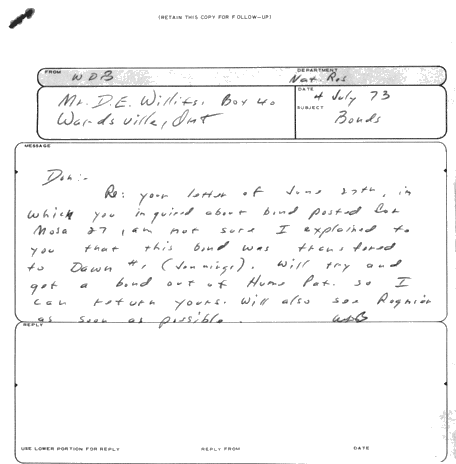 (RETAIN THIS COPY FOR FOLLOW-UP)
FROM
WDB
DEPARTMENT
Nat. Res
Mr. D.E. Willits. Box 40
Wardsville, Ont
DATE
4 July 73
SUBJECT
Bonds
MESSAGE
Don:-
Re: your letter of June 27th, in
which you inquired about bond posted for
Mosa 27, am not sure I explained to
you that this bond was transfered
to Dawn #1 (Jennings). Will try and
get a bond out of Hume Pat. so I
can return yours. Will also see Regnier
as soon as possible. WDB
REPLY
USE LOWER PORTION FOR REPLY
REPLY FROM
DATE